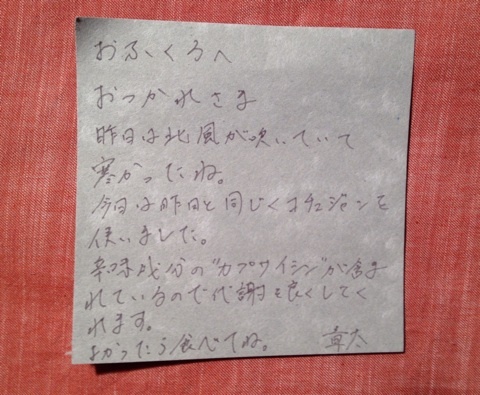 おふくろへ
おつかれさま
昨日は北風が吹いていて
寒かったね。
今日は昨日と同じくコチュジャンを
使いました。
辛味成分の"カプサイシン"が含ま
れているので代謝を良くしてく
れます。
よかったら食べてね。 章太